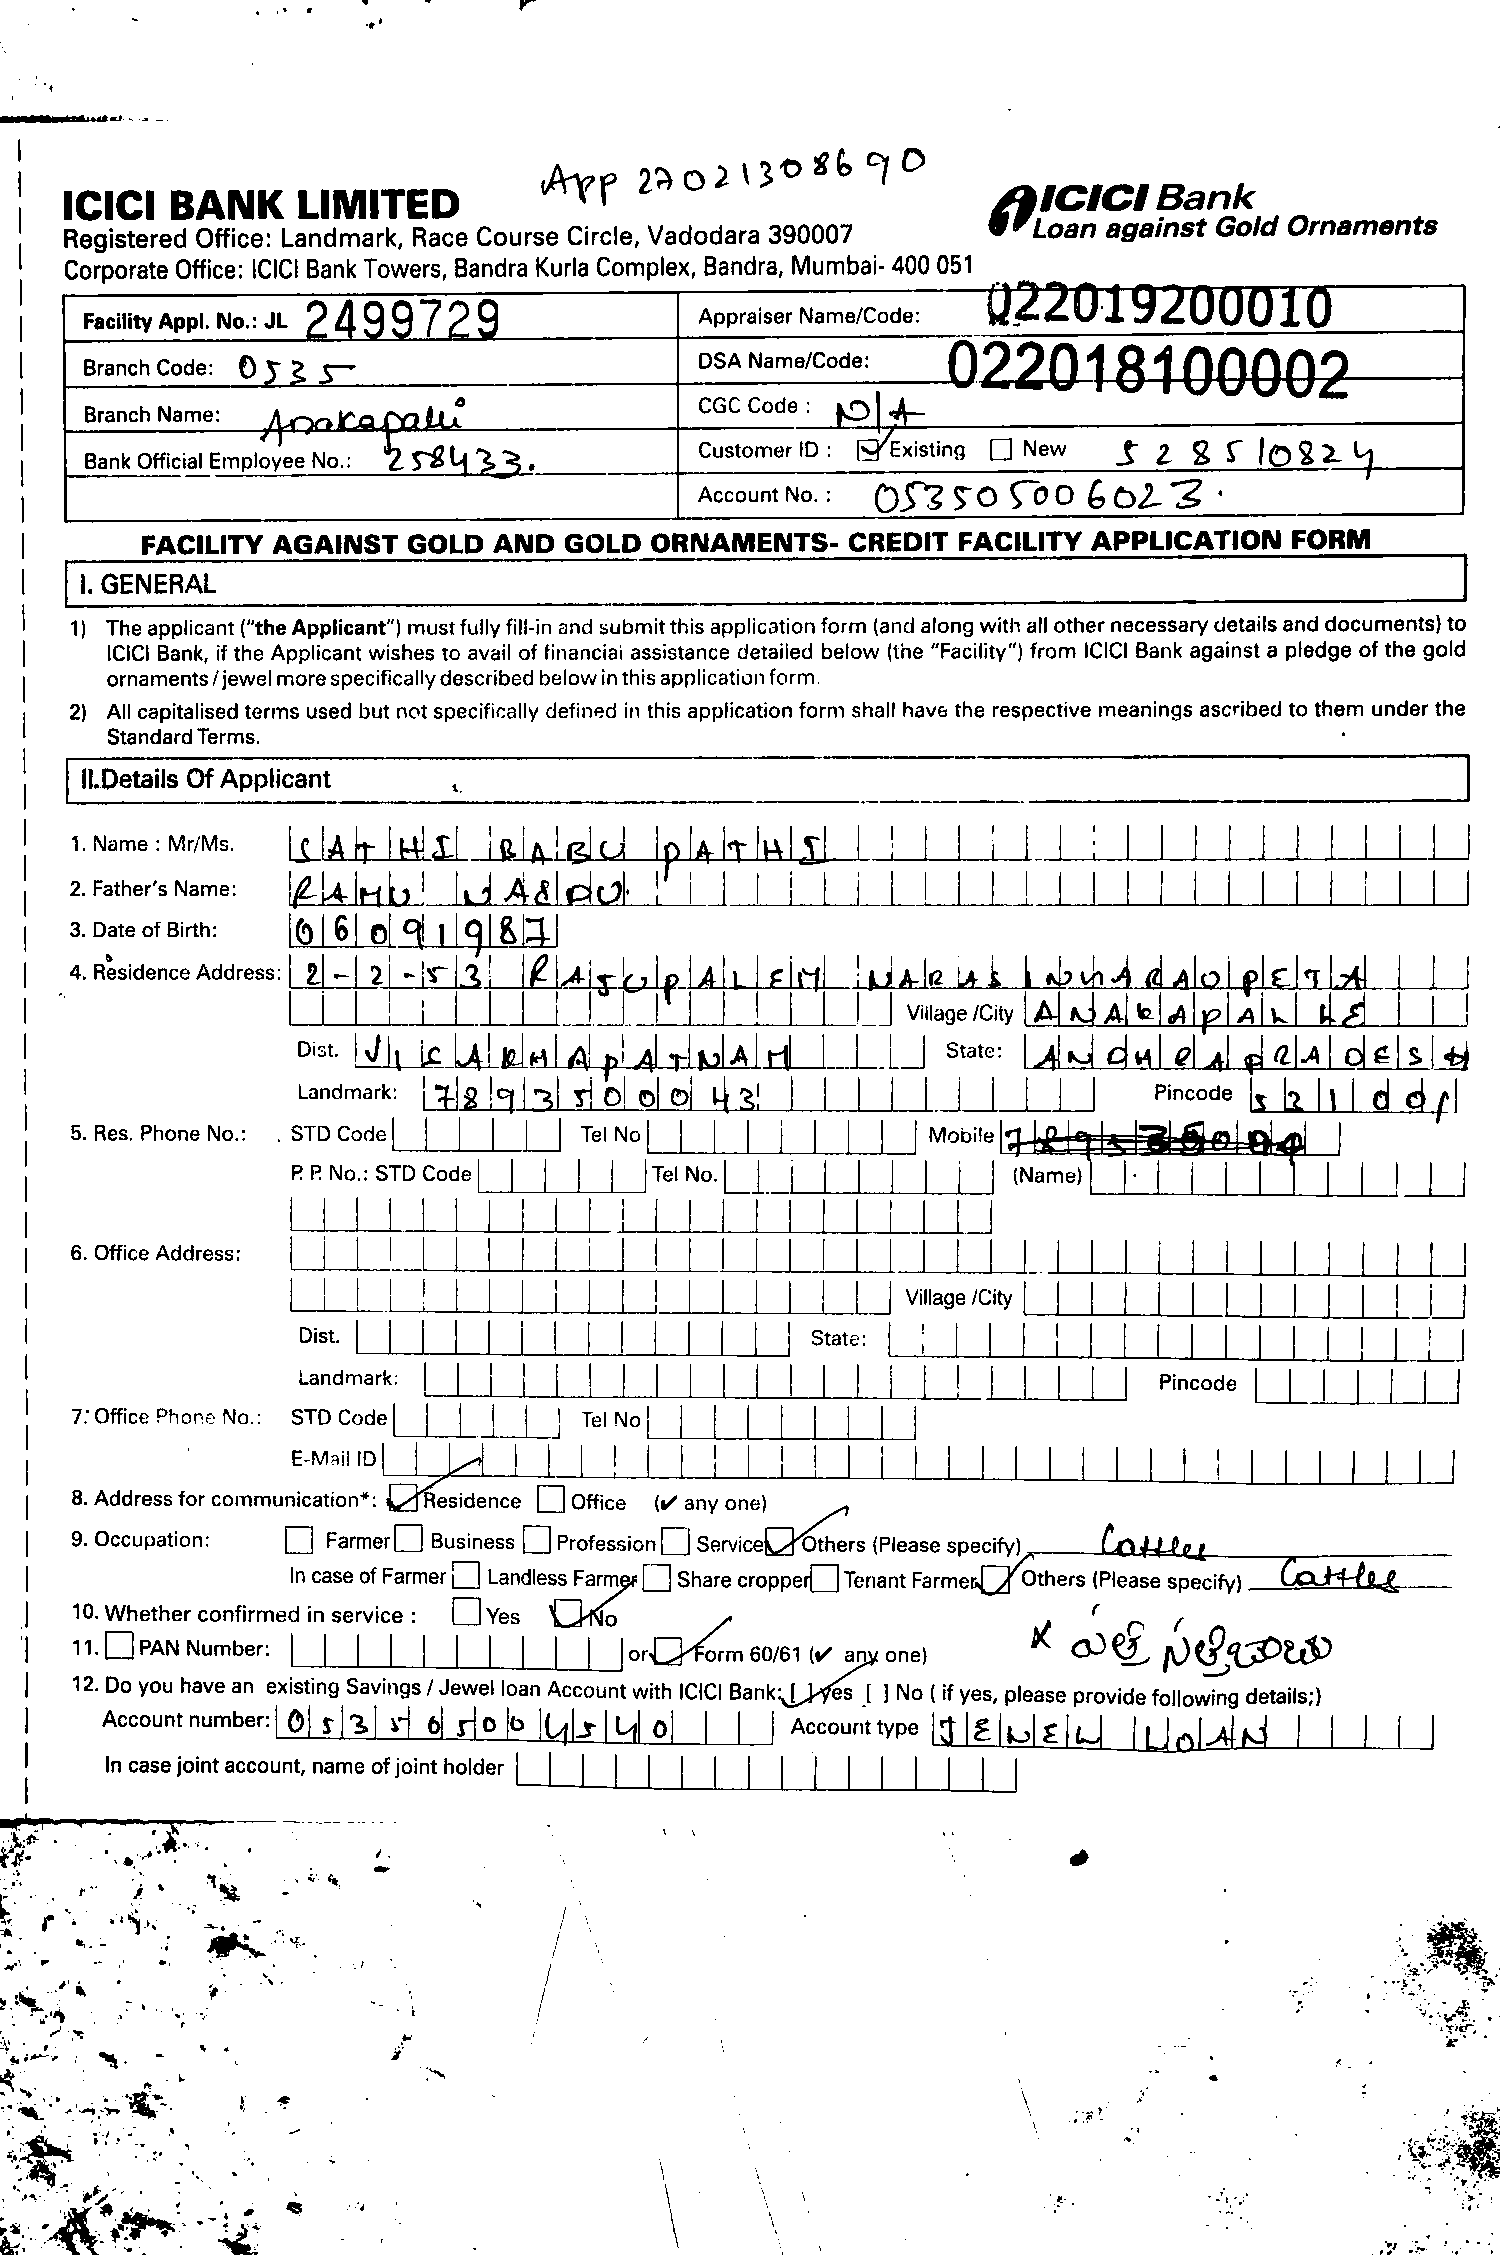 App 27021308690
ICICI BANK LIMITED
ICICI Bank
Registered Office: Landmark, Race Course Circle, Vadodara 390007
Loan against Gold Ornaments
Corporate Office: ICICI Bank Towers, Bandra Kurla Complex, Bandra, Mumbai- 400 051
Facility Appl. No.: JL 2499729
Appraiser Name/Code: 022019200010
Branch Code: 0535
DSA Name/Code: 022018100002
Branch Name: Anakapalli
CGC Code : N/A
Bank Official Employee No.: 258433.
Customer ID : Existing New 528510824
Account No. : 053505006023.
FACILITY AGAINST GOLD AND GOLD ORNAMENTS- CREDIT FACILITY APPLICATION FORM
I. GENERAL
1) The applicant ("the Applicant") must fully fill-in and submit this application form (and along with all other necessary details and documents) to
ICICI Bank, if the Applicant wishes to avail of financial assistance detailed below (the "Facility") from ICICI Bank against a pledge of the gold
ornaments / jewel more specifically described below in this application form.
2) All capitalised terms used but not specifically defined in this application form shall have the respective meanings ascribed to them under the
Standard Terms.
II.Details Of Applicant
1. Name : Mr/Ms. SATHI BABU PATHI
2. Father's Name: RAMU NAIDU
3. Date of Birth: 06091987
4. Residence Address: 2-2-53 RAJUPALEM
Village /City
Dist. State: ANDHRA PRADESH
Landmark: 7893500043 Pincode
5. Res. Phone No.: STD Code Tel No Mobile
P. P. No.: STD Code Tel No. (Name)
6. Office Address:
Village /City
Dist. State:
Landmark: Pincode
7. Office Phone No.: STD Code Tel No
E-Mail ID
8. Address for communication*: Residence Office (✓ any one)
9. Occupation: Farmer Business Profession Service Others (Please specify) Cattles
In case of Farmer Landless Farmer Share cropper Tenant Farmer Others (Please specify) Cattles
10. Whether confirmed in service : Yes No
11. PAN Number: or Form 60/61 (✓ any one)
12. Do you have an existing Savings / Jewel loan Account with ICICI Bank: [ ] Yes [ ] No ( if yes, please provide following details;)
Account number: 053505004540 Account type JEWEL LOAN
In case joint account, name of joint holder